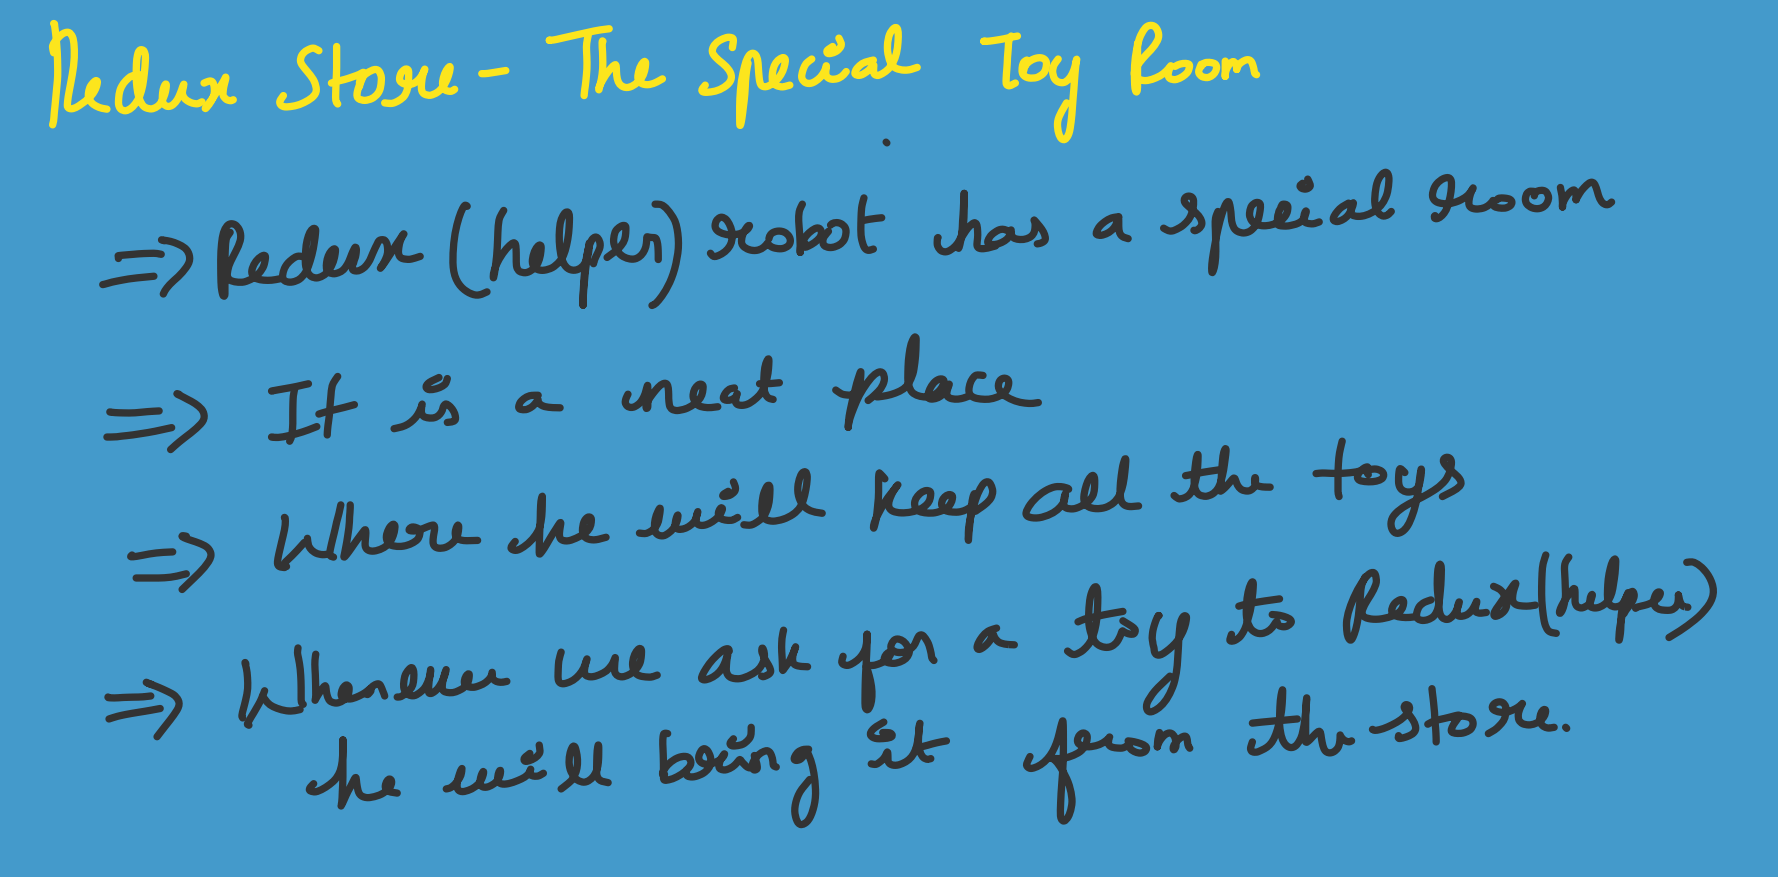 Redux Store - The Special Toy Room
⇒ Redux (helper) robot has a special room
⇒ It is a neat place
⇒ Where he will keep all the toys
⇒ Whenever we ask for a toy to Redux (helper)
he will bring it from the store.